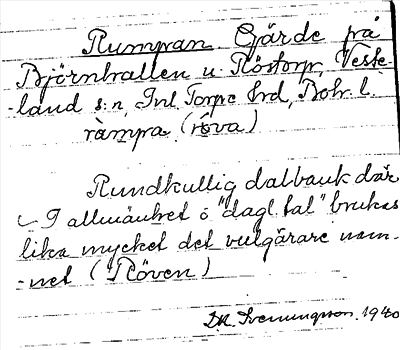 Rumpan Gärde på
Björnhallen u. Röstorp, Veste-
-land s:n, Inl. Torpe hrd, Boh. l.
rämpa (röva)
Rundkullig dalbank där
I allmänhet o "dagl. tal" brukas
lika mycket det vulgärare nam-
-net (Röven)
1940